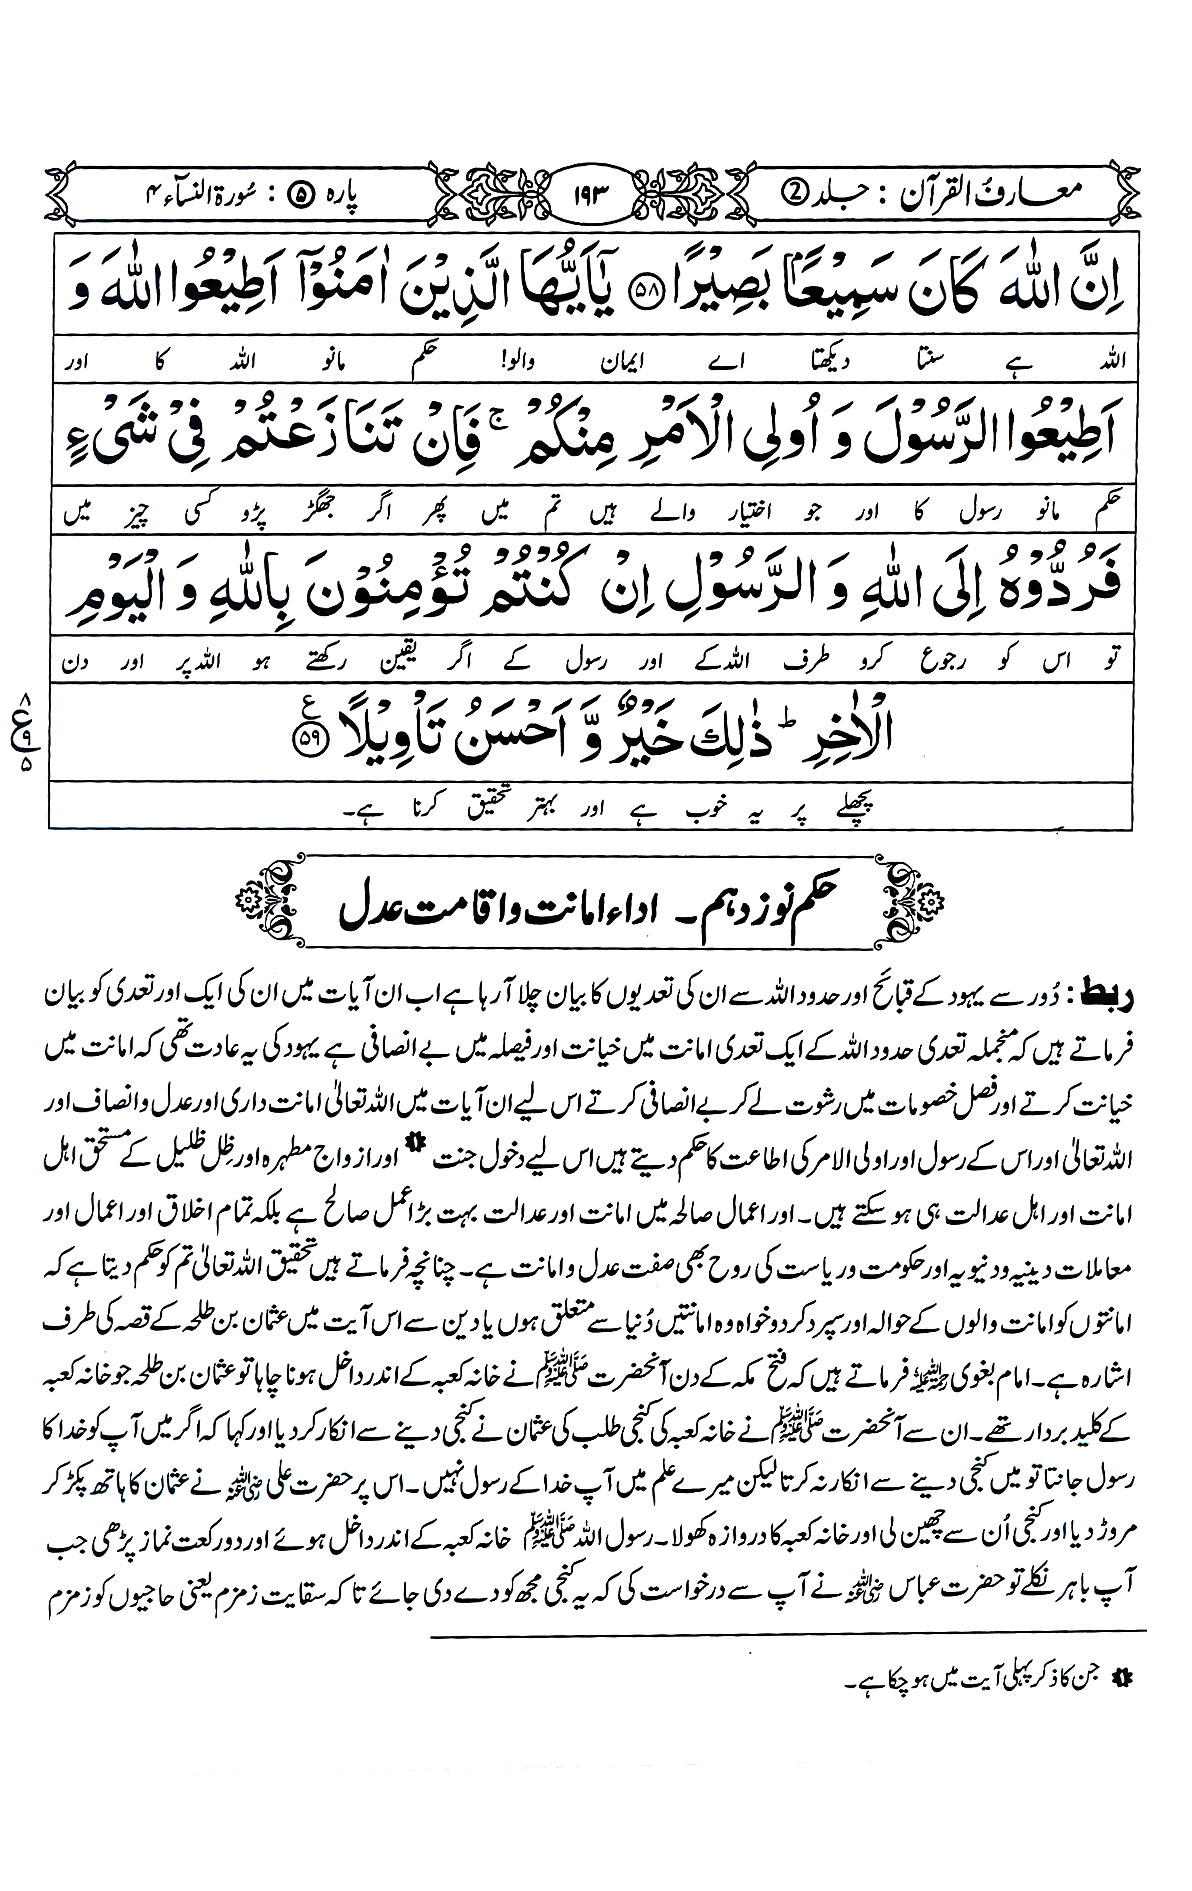 معارف القرآن : جلد ②
۱۹۳
پارہ ⑤ : سُورۃ النسآء ۴
اِنَّ اللّٰهَ كَانَ سَمِيْعًۢا بَصِيْرًا ﴿۵۸﴾ يٰۤاَيُّهَا الَّذِيْنَ اٰمَنُوْۤا اَطِيْعُوا اللّٰهَ وَ
اللہ ہے سنتا دیکھتا اے ایمان والو! حکم مانو اللہ کا اور
اَطِيْعُوا الرَّسُوْلَ وَ اُولِي الْاَمْرِ مِنْكُمْ ۚ فَاِنْ تَنَازَعْتُمْ فِيْ شَيْءٍ
حکم مانو رسول کا اور جو اختیار والے ہیں تم میں پھر اگر جھگڑ پڑو کسی چیز میں
فَرُدُّوْهُ اِلَى اللّٰهِ وَ الرَّسُوْلِ اِنْ كُنْتُمْ تُؤْمِنُوْنَ بِاللّٰهِ وَ الْيَوْمِ
تو اس کو رجوع کرو طرف اللہ کے اور رسول کے اگر یقین رکھتے ہو اللہ پر اور دن
الْاٰخِرِ ؕ ذٰلِكَ خَيْرٌ وَّ اَحْسَنُ تَاْوِيْلًا ﴿۵۹﴾ ع
۸
ع ۹
۵
پچھلے پر یہ خوب ہے اور بہتر تحقیق کرنا ہے۔
حکم نوزدہم۔ اداء امانت و اقامت عدل
ربط: دُور سے یہود کے قبائح اور حدود اللہ سے ان کی تعدیوں کا بیان چلا آ رہا ہے اب ان آیات میں ان کی ایک اور تعدی کو بیان
فرماتے ہیں کہ منجملہ تعدی حدود اللہ کے ایک تعدی امانت میں خیانت اور فیصلہ میں بے انصافی ہے یہود کی یہ عادت تھی کہ امانت میں
خیانت کرتے اور فصل خصومات میں رشوت لے کر بے انصافی کرتے اس لیے ان آیات میں اللہ تعالیٰ امانت داری اور عدل و انصاف اور
اللہ تعالیٰ اور اس کے رسول اور اولی الامر کی اطاعت کا حکم دیتے ہیں اس لیے دخول جنت ❶ اور ازواج مطہرہ اور ظِل ظلیل کے مستحق اہل
امانت اور اہل عدالت ہی ہو سکتے ہیں۔ اور اعمال صالحہ میں امانت اور عدالت بہت بڑا عمل صالح ہے بلکہ تمام اخلاق اور اعمال اور
معاملات دینیہ و دنیویہ اور حکومت و ریاست کی روح بھی صفت عدل و امانت ہے۔ چنانچہ فرماتے ہیں تحقیق اللہ تعالیٰ تم کو حکم دیتا ہے کہ
امانتوں کو امانت والوں کے حوالہ اور سپرد کر دو خواہ وہ امانتیں دُنیا سے متعلق ہوں یا دین سے اس آیت میں عثمان بن طلحہ کے قصہ کی طرف
اشارہ ہے۔ امام بغوی رحمہ اللہ فرماتے ہیں کہ فتح مکہ کے دن آنحضرت ﷺ نے خانہ کعبہ کے اندر داخل ہونا چاہا تو عثمان بن طلحہ جو خانہ کعبہ
کے کلید بردار تھے۔ ان سے آنحضرت ﷺ نے خانہ کعبہ کی کنجی طلب کی عثمان نے کنجی دینے سے انکار کر دیا اور کہا کہ اگر میں آپ کو خدا کا
رسول جانتا تو میں کنجی دینے سے انکار نہ کرتا لیکن میرے علم میں آپ خدا کے رسول نہیں۔ اس پر حضرت علی رضی اللہ عنہ نے عثمان کا ہاتھ پکڑ کر
مروڑ دیا اور کنجی اُن سے چھین لی اور خانہ کعبہ کا دروازہ کھولا۔ رسول اللہ ﷺ خانہ کعبہ کے اندر داخل ہوئے اور دو رکعت نماز پڑھی جب
آپ باہر نکلے تو حضرت عباس رضی اللہ عنہ نے آپ سے درخواست کی کہ یہ کنجی مجھ کو دے دی جائے تا کہ سقایت زمزم یعنی حاجیوں کو زمزم
❶ جن کا ذکر پہلی آیت میں ہو چکا ہے۔